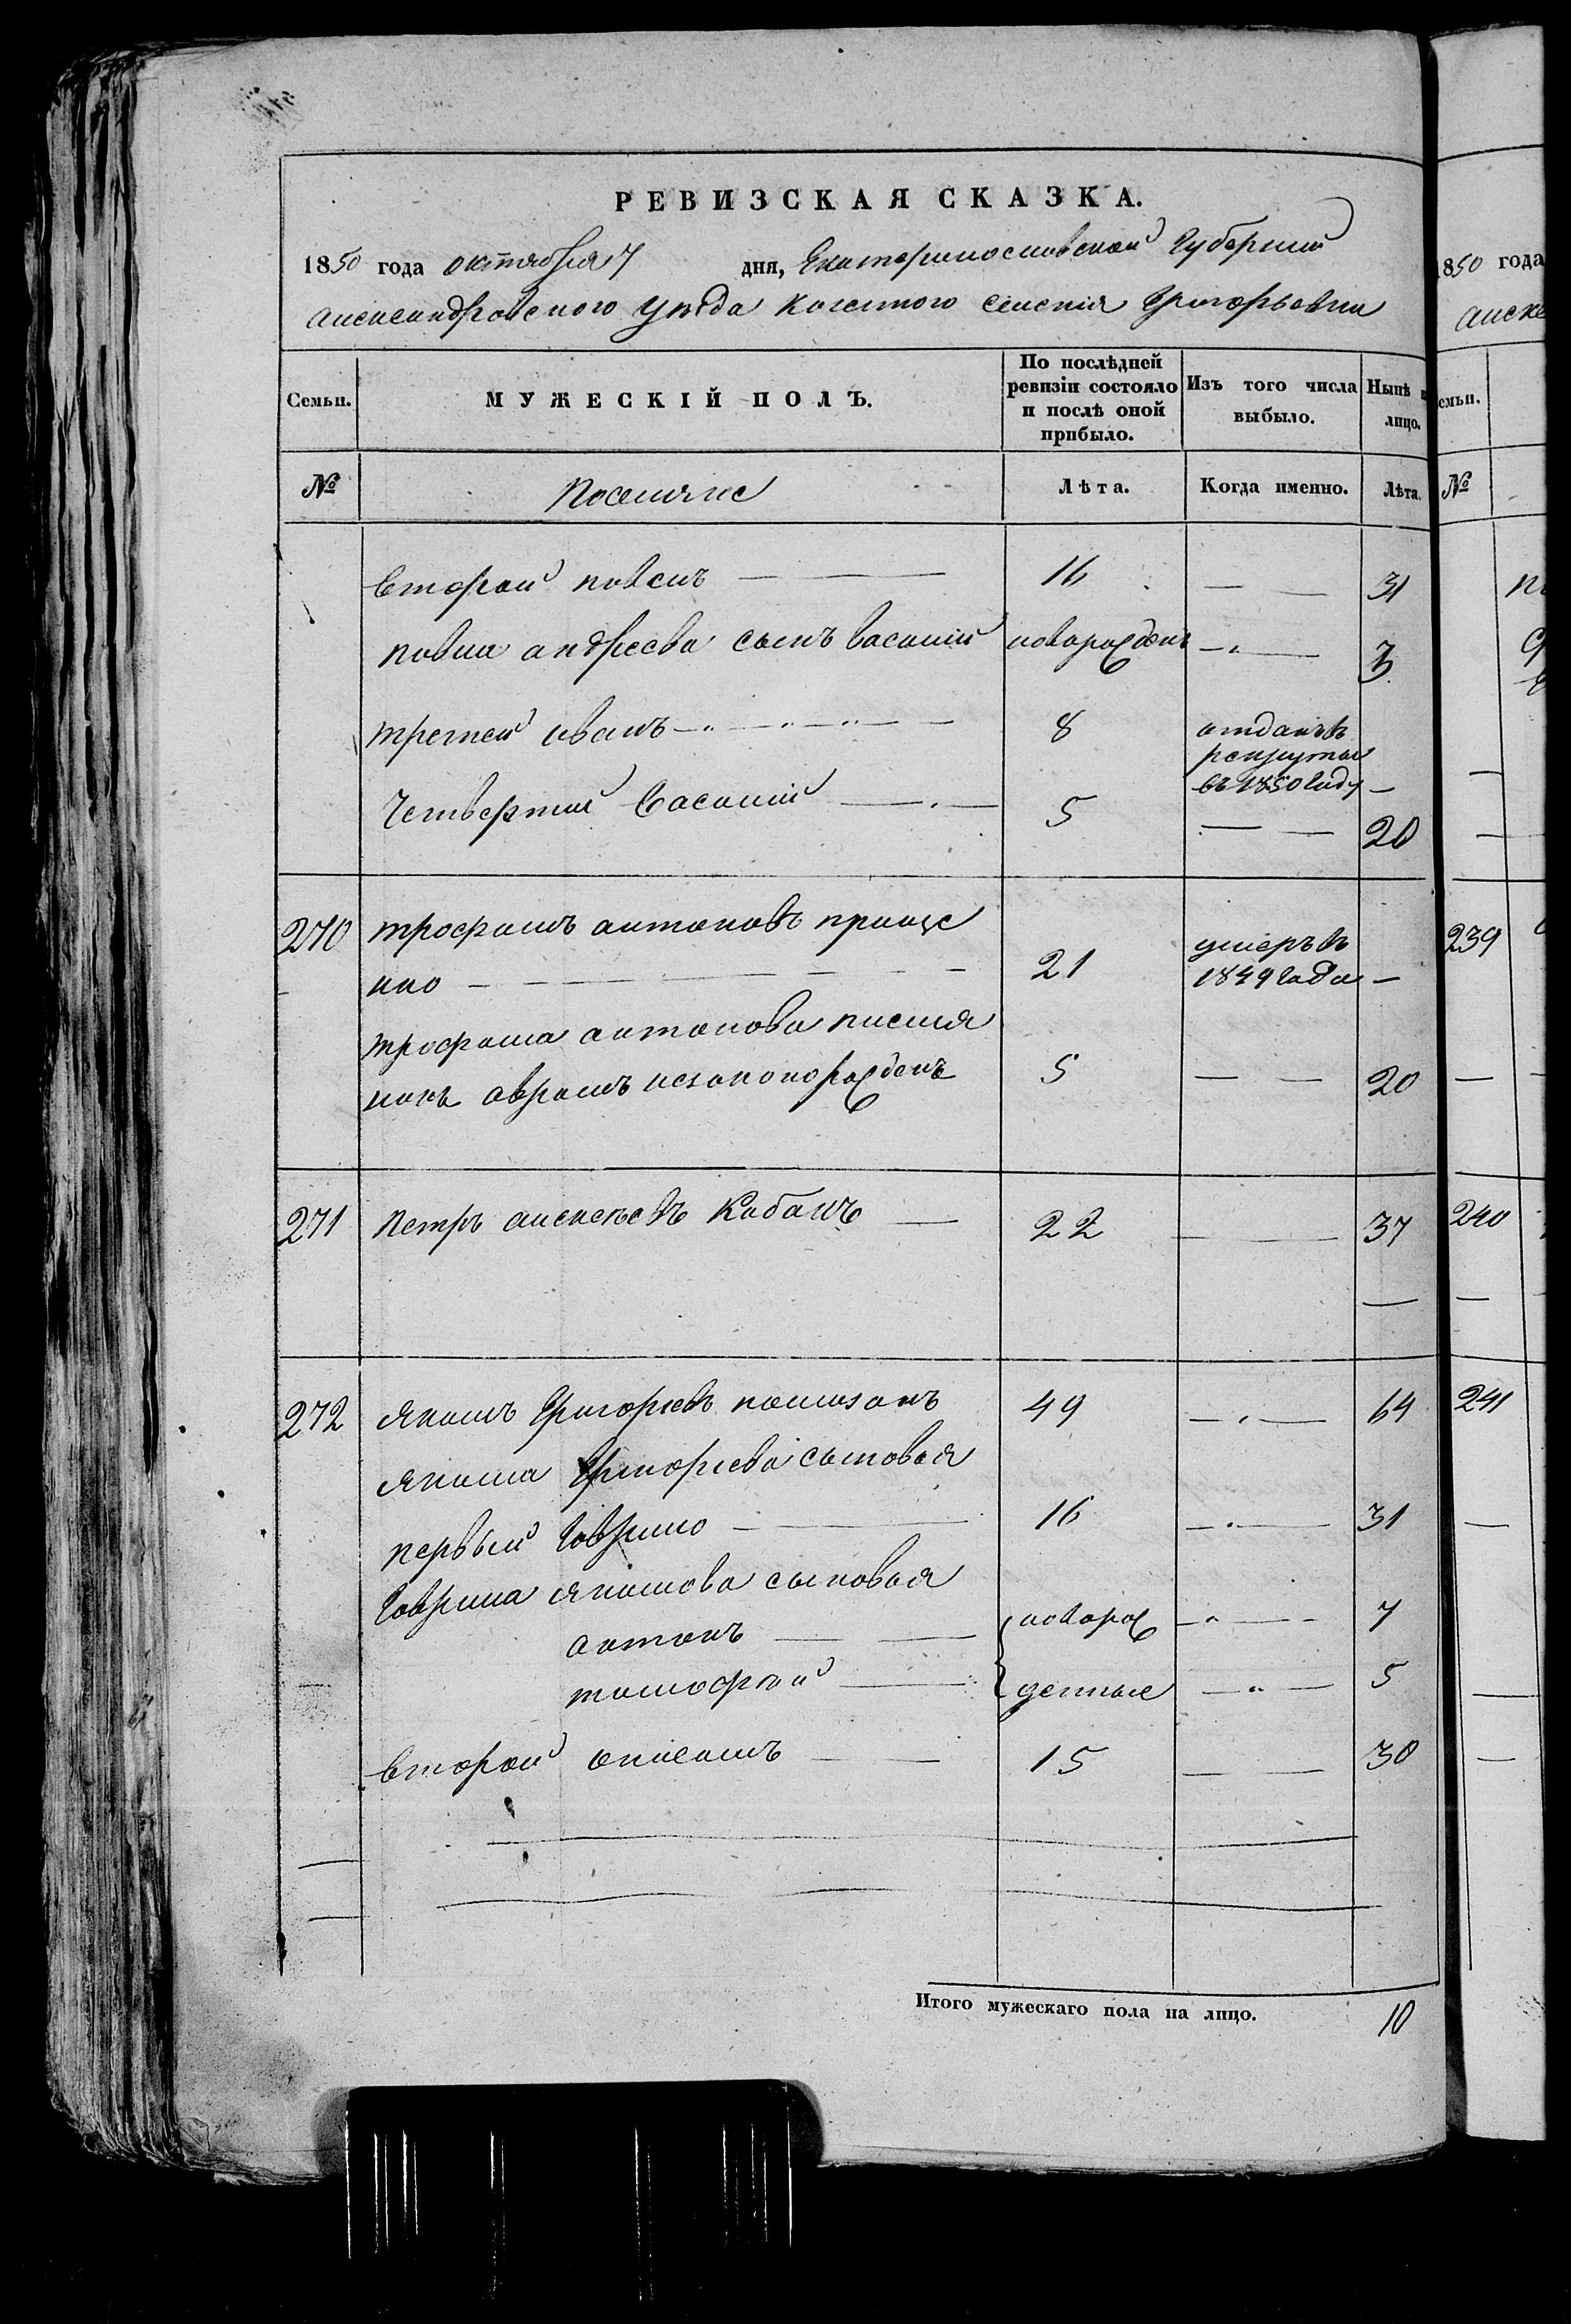 РЕВИЗСКАЯ СКАЗКА.
1850 года октября 7 дня, Екатеринославской Губернии
Александровского Уѣзда казенного селенія Григорьевки
Семьи. МУЖЕСКІЙ ПОЛЪ. По послѣдней ревизіи состояло и послѣ оной прибыло. Изъ того числа выбыло. Нынѣ лицо.
№ Поселяне Лѣта. Когда именно. Лѣта.
второй павелъ 16 — 31
павла андреева сынъ василий новорожденъ — 3
третей иванъ 8 отданъ въ рекруты въ 1850 году —
Четвертый василий 5 — 20
270 трофимъ антоновъ
нко 21 умеръ въ 1849 года —
трофима антонова племя
никъ аврамъ незаконорожденъ 5 — 20
271 Петръ алексеевъ Кабанъ 22 — 37
—
272 якимъ Григорьевъ 49 — 64
якима Григорьева сыновья
первый Гаврило 16 — 31
Гаврила якимова сыновья
антонъ новорож — 7
тимофей денные — 5
второй 15 — 30
Итого мужескаго пола на лицо. 10
1850 года
алексе
емьи.
№
239
240
241